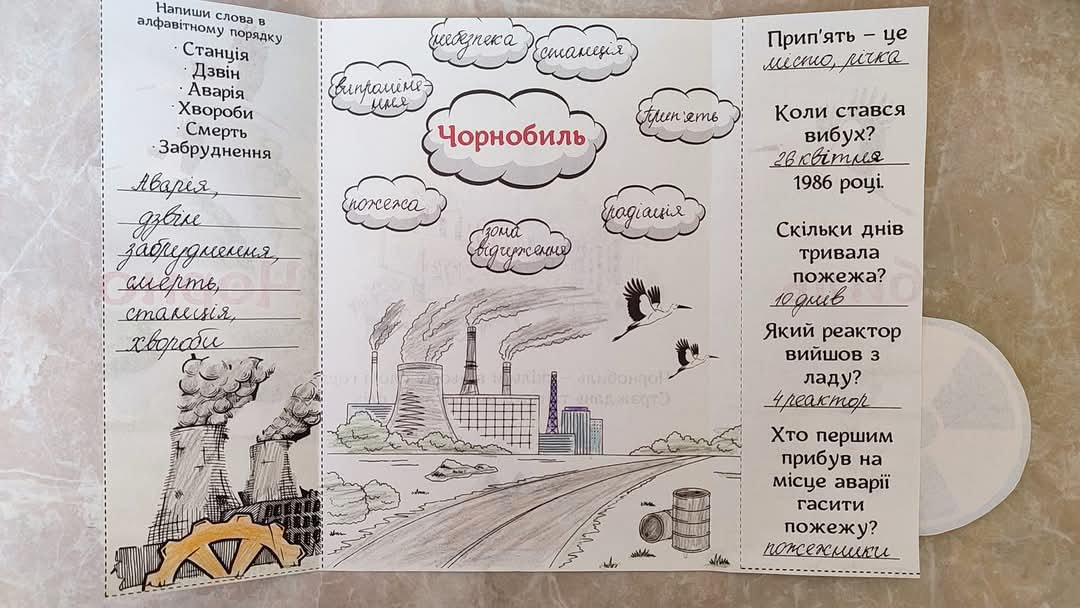 Напиши слова в
алфавітному порядку
· Станція
· Дзвін
· Аварія
· Хвороби
· Смерть
· Забруднення
Аварія,
дзвін
забруднення,
смерть,
станція,
хвороби
небезпека
станція
випроміне-
ння
Прип'ять
Чорнобиль
пожежа
радіація
зона
відчуження
Прип'ять – це
місто, річка
Коли стався
вибух?
26 квітня
1986 році.
Скільки днів
тривала
пожежа?
10 днів
Який реактор
вийшов з
ладу?
4 реактор
Хто першим
прибув на
місце аварії
гасити
пожежу?
пожежники